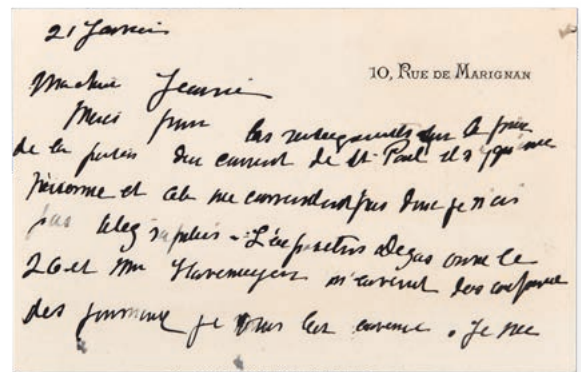 21 Janvier
10, RUE DE MARIGNAN
Ma chère Jeannie
Merci pour les renseignements sur le prix
de la pension du couvent de St Paul il n'y a qu'une
personne et cela ne conviendrait pas donc je n'ai
pas télégraphié - L'exposition Degas ouvre le
26 et Mrs Havemeyer m'envoie des coupures
des journaux je vous les envoie. Je ne